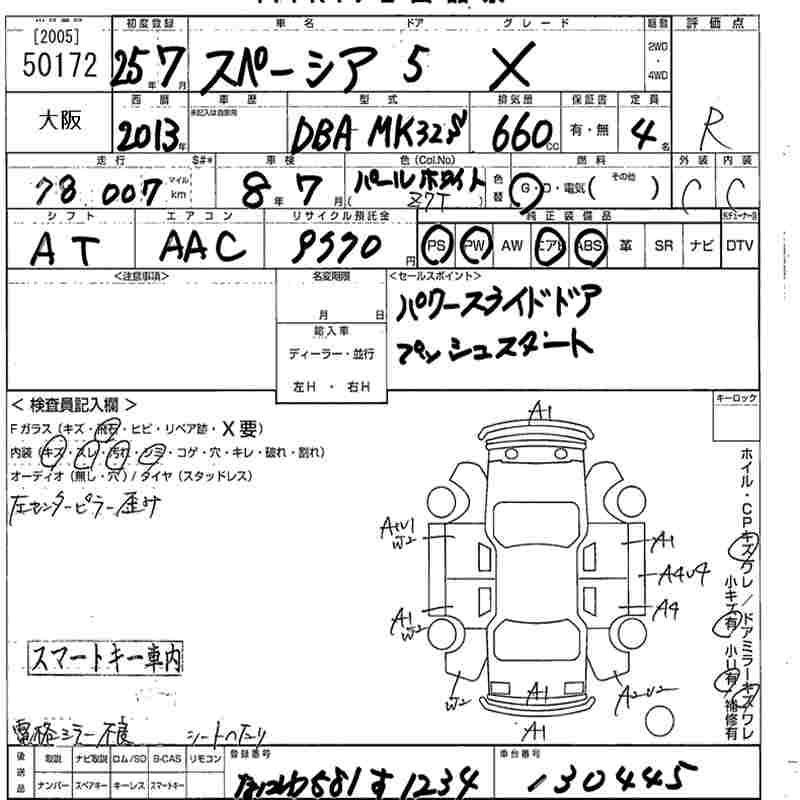 [2005]
50172
初度登録
25年7月
車名 ドア グレード
スペーシア 5 X
駆動
2WD
・
4WD
評価点
R
大阪
西暦
2013年
車歴
未記入は自家用
型式
DBA MK32S
排気量
660cc
保証書
有・無
定員
4名
走行
78007
マイル
km
S#*
車検
8年7月
色(Col.No)
パールホワイト
Z7T
色替
燃料
G・D・電気( その他 )
外装
C
内装
C
シフト
AT
エアコン
AAC
リサイクル預託金
9570円
純正装備品
PS PW AW エアB ABS 革 SR ナビ DTV
<注意事項>
名変期限
月 日
輸入車
ディーラー・並行
左H・右H
<セールスポイント>
パワースライドドア
プッシュスタート
キーロック
<検査員記入欄>
Fガラス(キズ・飛石・ヒビ・リペア跡・X要)
内装(キズ・スレ・汚れ・シミ・コゲ・穴・キレ・破れ・割れ)
オーディオ(無し・穴)/タイヤ(スタッドレス)
左センターピラー歪み
A1
A1
A4U4
A4
A1
W2
W2
A1
A1
A2U2
W2
ホイル・CPキズワレ/ドアミラーキズワレ
小キズ有 小U有 補修有
スマートキー車内
電格ミラー不良 シートヘタリ
後送品
取説 ナビ取説 ロム/SD B-CAS リモコン
ナンバー スペアキー キーレス スマートキー
登録番号
なにわ581す1234
車台番号
130445